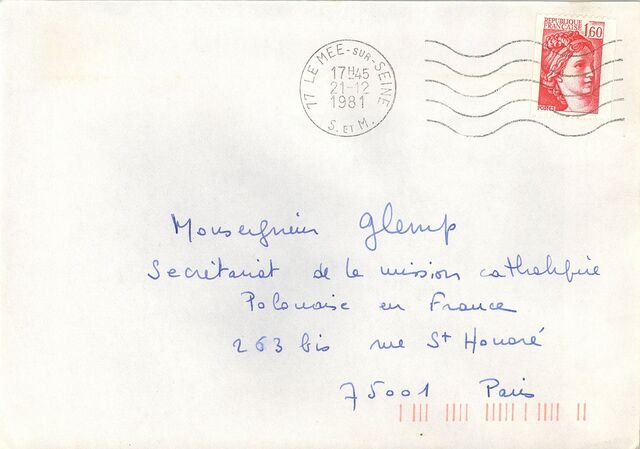 REPUBLIQUE FRANCAISE 1,60
77 LE MEE-SUR-SEINE
17H45
21-12
1981
S. ET M.
Monseigneur Glemp
Secrétariat de la mission catholique
Polonaise en France
263 bis rue St Honoré
75001 Paris